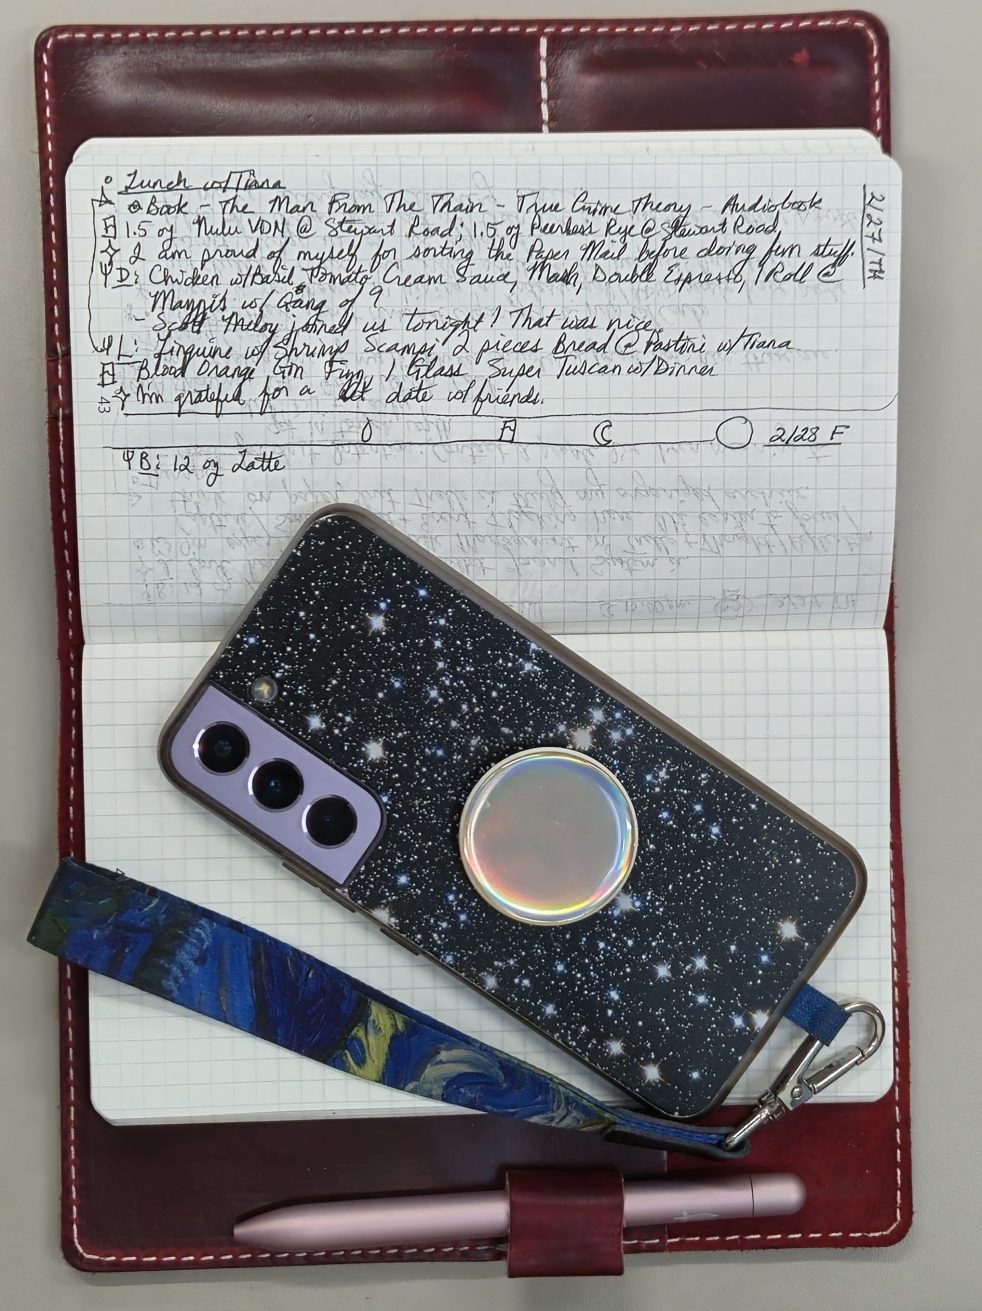 Lunch w/Tiana
Book - The Man From The Train - True Crime Theory - Audiobook
1.5 oz Nulu VDN @ Stewart Road; 1.5 oz Peerless Rye @ Stewart Road,
I am proud of myself for sorting the Paper Mail before doing fun stuff.
D: Chicken w/Basil Tomato Cream Sauce, Mash, Double Espresso, 1 Roll @
w/ Gang of 9
- Scott joined us tonight! That was nice.
L: Linguine w/ Shrimp Scampi 2 pieces Bread @ Pastore w/Tiana
Blood Orange Gin 1 Glass Super Tuscan w/Dinner
I'm grateful for a date w/friends.
43
2/27/TH
2/28 F
B: 12 oz Latte